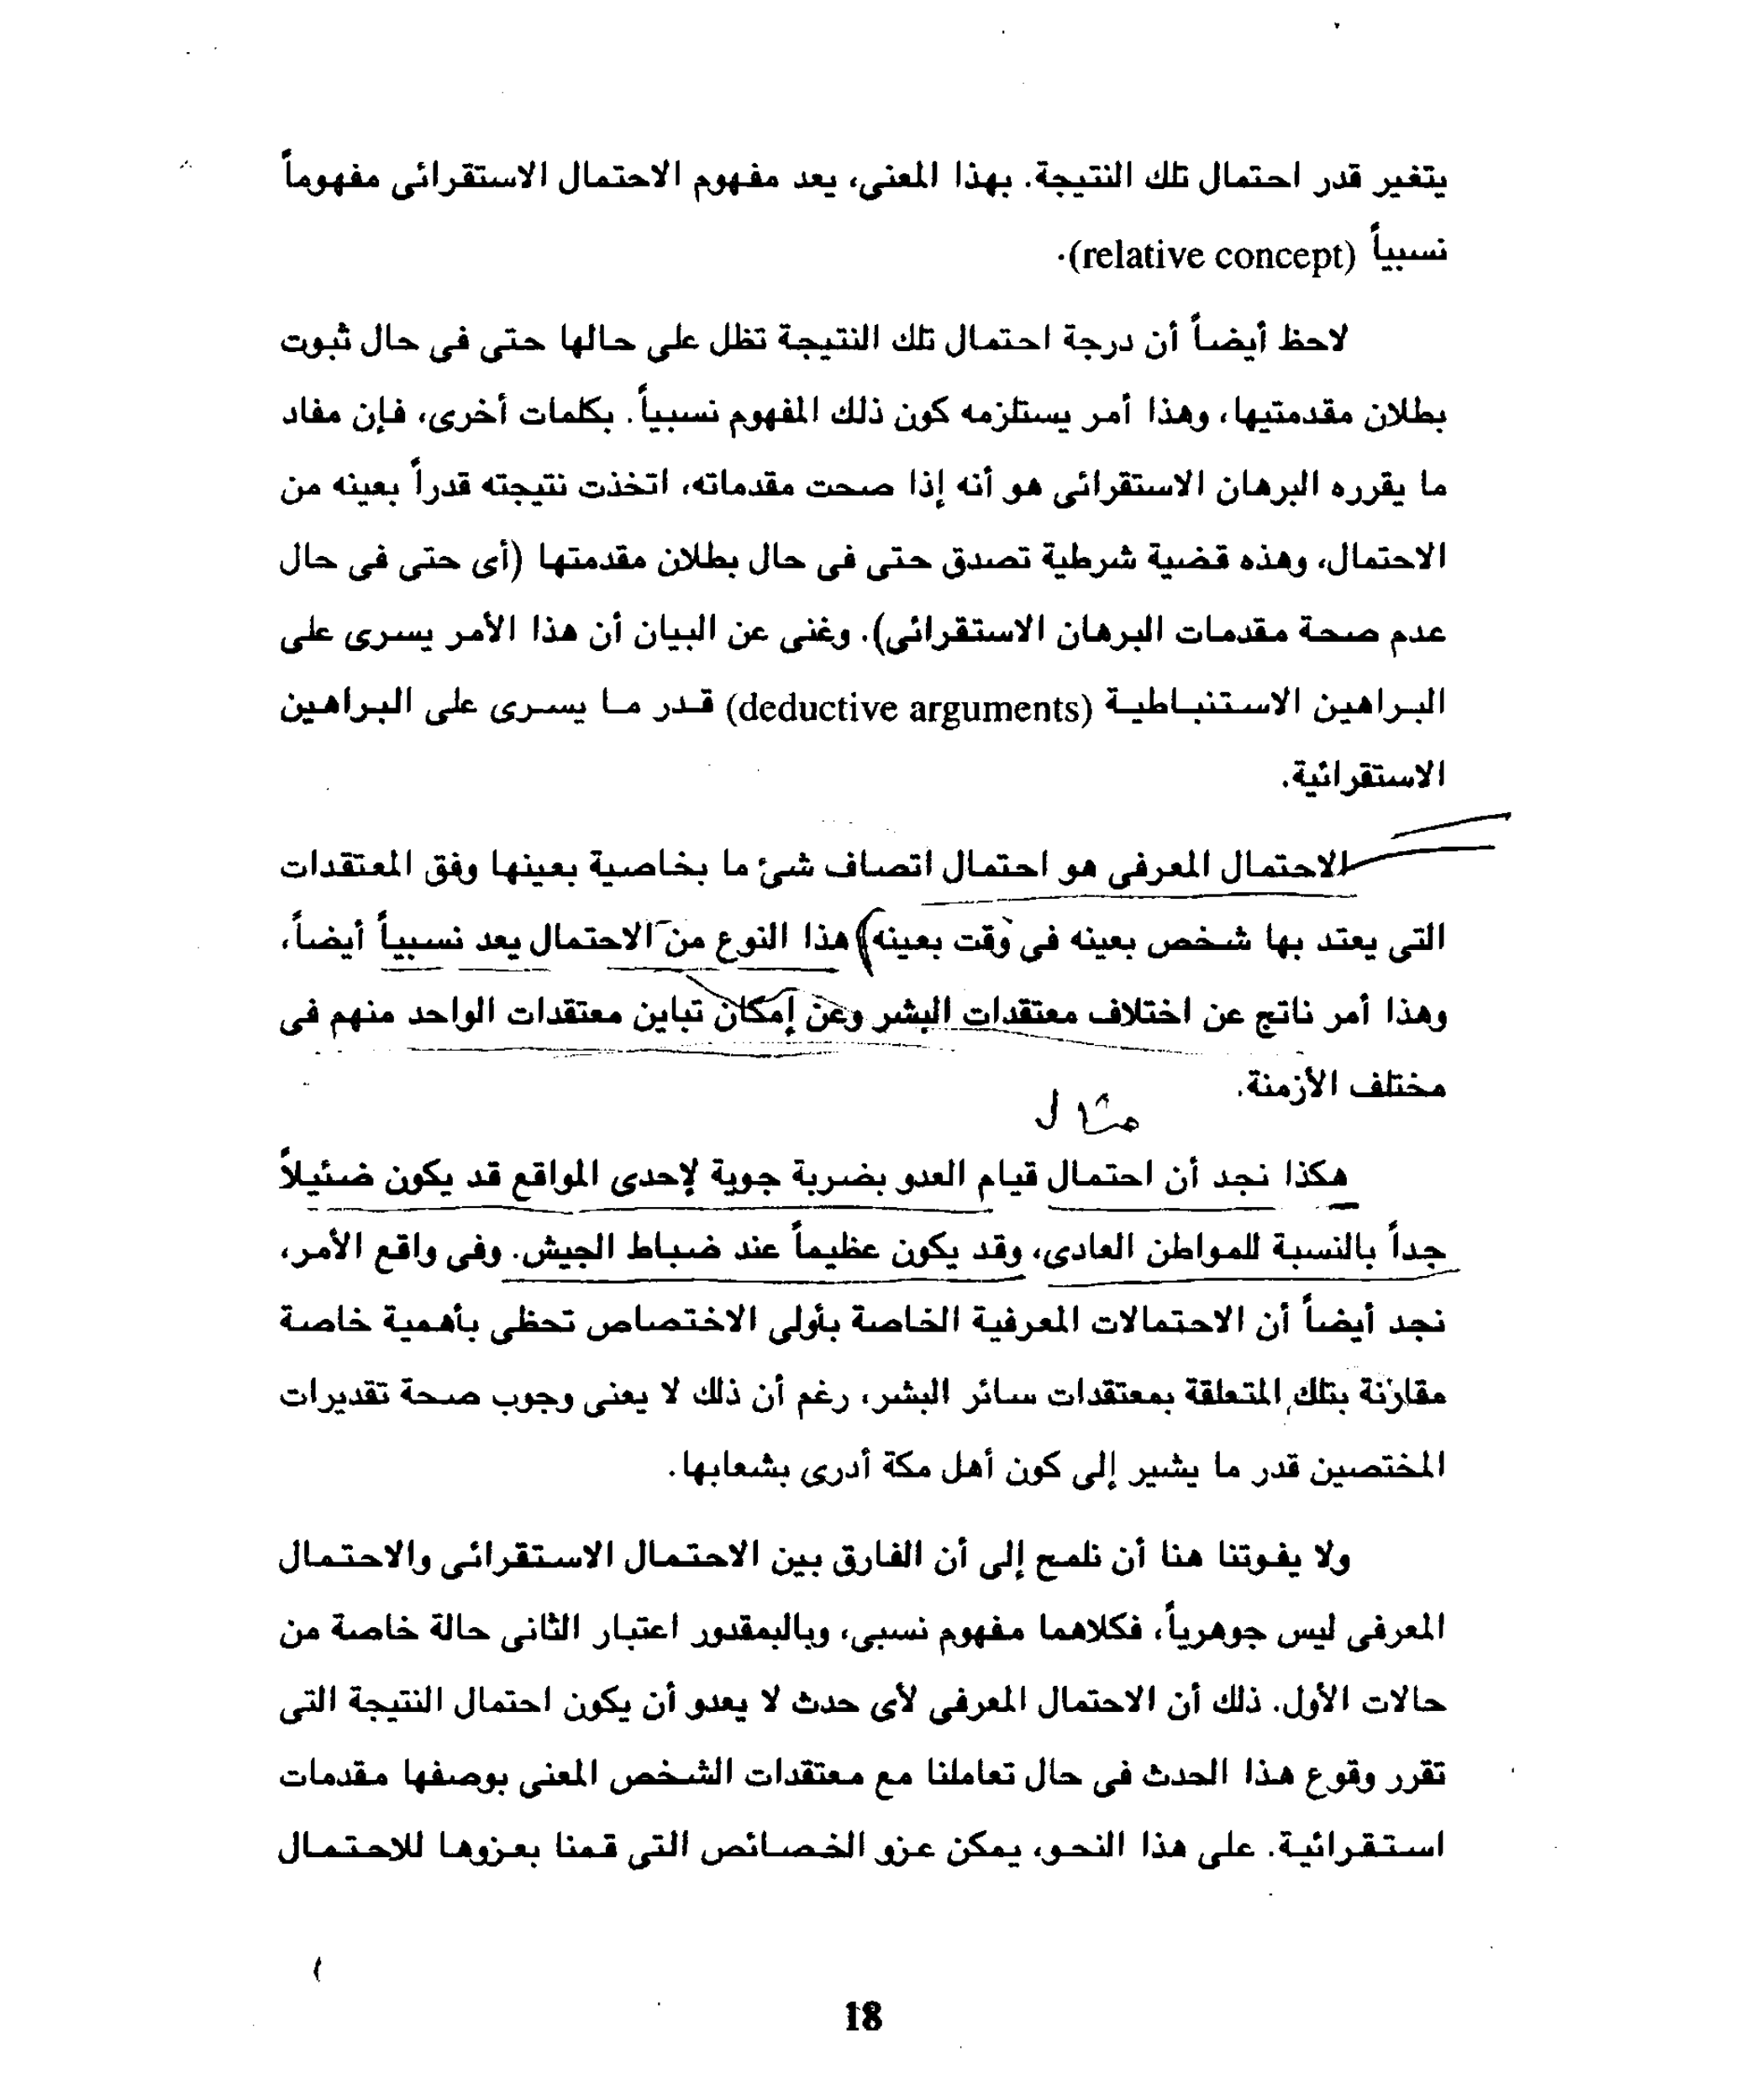 يتغير قدر احتمال تلك النتيجة. بهذا المعنى، يعد مفهوم الاحتمال الاستقرائى مفهوماً
نسبياً (relative concept).
لاحظ أيضاً أن درجة احتمال تلك النتيجة تظل على حالها حتى فى حال ثبوت
بطلان مقدمتيها، وهذا أمر يستلزمه كون ذلك المفهوم نسبياً. بكلمات أخرى، فإن مفاد
ما يقرره البرهان الاستقرائى هو أنه إذا صحت مقدماته، اتخذت نتيجته قدراً بعينه من
الاحتمال، وهذه قضية شرطية تصدق حتى فى حال بطلان مقدمتها (أى حتى فى حال
عدم صحة مقدمات البرهان الاستقرائى). وغنى عن البيان أن هذا الأمر يسرى على
البراهين الاستنباطية (deductive arguments) قدر ما يسرى على البراهين
الاستقرائية.
الاحتمال المعرفى هو احتمال اتصاف شئ ما بخاصية بعينها وفق المعتقدات
التى يعتد بها شخص بعينه فى وقت بعينه) هذا النوع من الاحتمال يعد نسبياً أيضاً،
وهذا أمر ناتج عن اختلاف معتقدات البشر وعن إمكان تباين معتقدات الواحد منهم فى
مختلف الأزمنة.
مثال
هكذا نجد أن احتمال قيام العدو بضربة جوية لإحدى المواقع قد يكون ضئيلاً
جداً بالنسبة للمواطن العادى، وقد يكون عظيماً عند ضباط الجيش. وفى واقع الأمر،
نجد أيضاً أن الاحتمالات المعرفية الخاصة بأولى الاختصاص تحظى بأهمية خاصة
مقارنة بتلك المتعلقة بمعتقدات سائر البشر، رغم أن ذلك لا يعنى وجوب صحة تقديرات
المختصين قدر ما يشير إلى كون أهل مكة أدرى بشعابها.
ولا يفوتنا هنا أن نلمح إلى أن الفارق بين الاحتمال الاستقرائى والاحتمال
المعرفى ليس جوهرياً، فكلاهما مفهوم نسبى، وبالبمقدور اعتبار الثانى حالة خاصة من
حالات الأول. ذلك أن الاحتمال المعرفى لأى حدث لا يعدو أن يكون احتمال النتيجة التى
تقرر وقوع هذا الحدث فى حال تعاملنا مع معتقدات الشخص المعنى بوصفها مقدمات
استقرائية. على هذا النحو، يمكن عزو الخصائص التى قمنا بعزوها للاحتمال
18